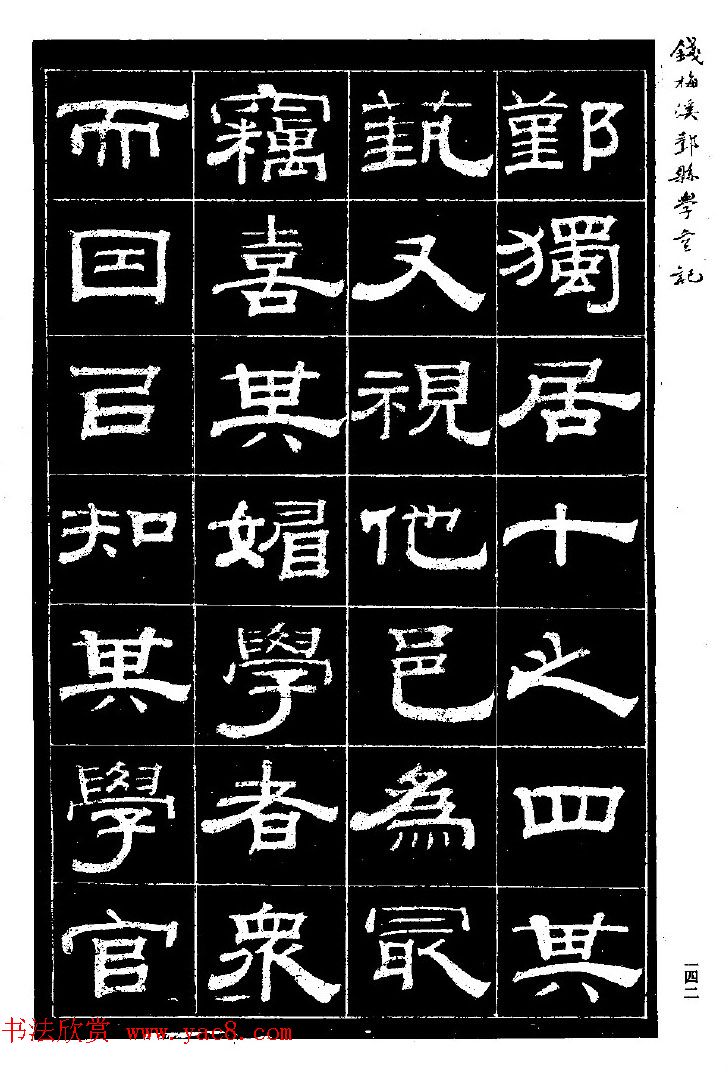 錢梅溪鄞縣學記
鄞獨居十之四其
蓺又視他邑為冣
竊喜其媚學者眾
而囙㠯知其學官
一四二
书法欣赏 www.yac8.com